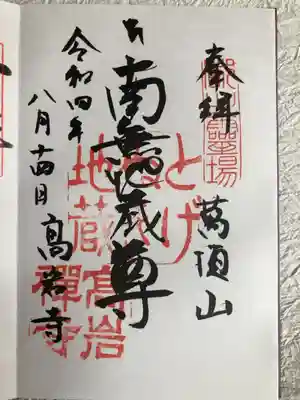 奉拝
萬頂山
南無地蔵尊
令和四年
八月十四日
高岩寺
とげ
ぬき
地蔵
高岩
禪寺